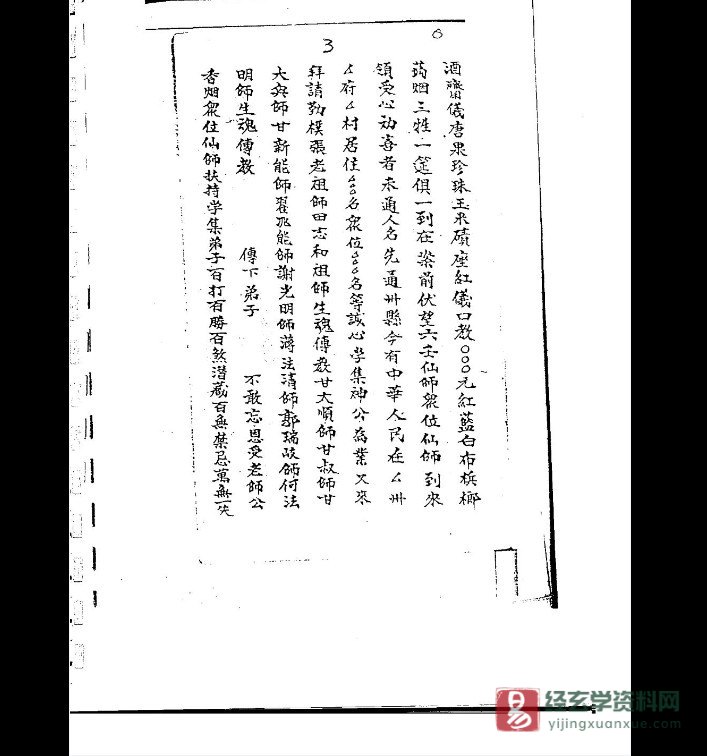 6
3
酒齋儀唐果珍珠玉米磧座紅儀口教〇〇〇元紅藍白布槟榔
蒟烟三牲一筵俱一到在案前伏望六壬仙師眾位仙師到來
領受心动喜者未通人名先通卅縣今有中華人民在厶卅
厶府厶村居住厶厶名眾位厶厶名等誠心学集神公為業又來
拜請勒樸張老祖師田志和祖師生魂傳教甘大順師甘叔師甘
大兵師甘新能師能師謝光明師蒋法清師郭瑞政師何法
明師生魂傳教 傳下弟子 不敢忘恩受老師公
香烟眾位仙師扶持学集弟子百打百勝百煞潜藏百無禁忌萬無一失
易
经玄学资料网
yijingxuanxue.com